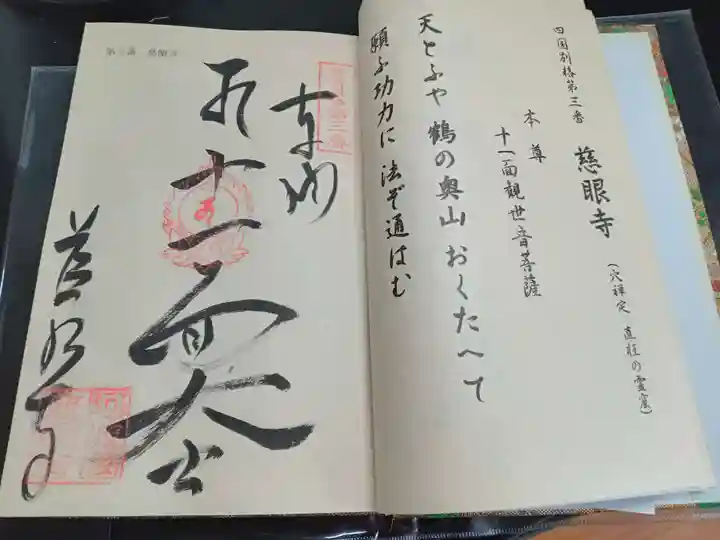 四国別格第三番
慈眼寺
（穴禅定 直柱の霊窟）
本尊
十一面観世音菩薩
天とふや 鶴の奥山 おくたへて
願ふ功力に 法ぞ通はむ
第三番 慈眼寺
奉納
十一面大士
慈眼寺